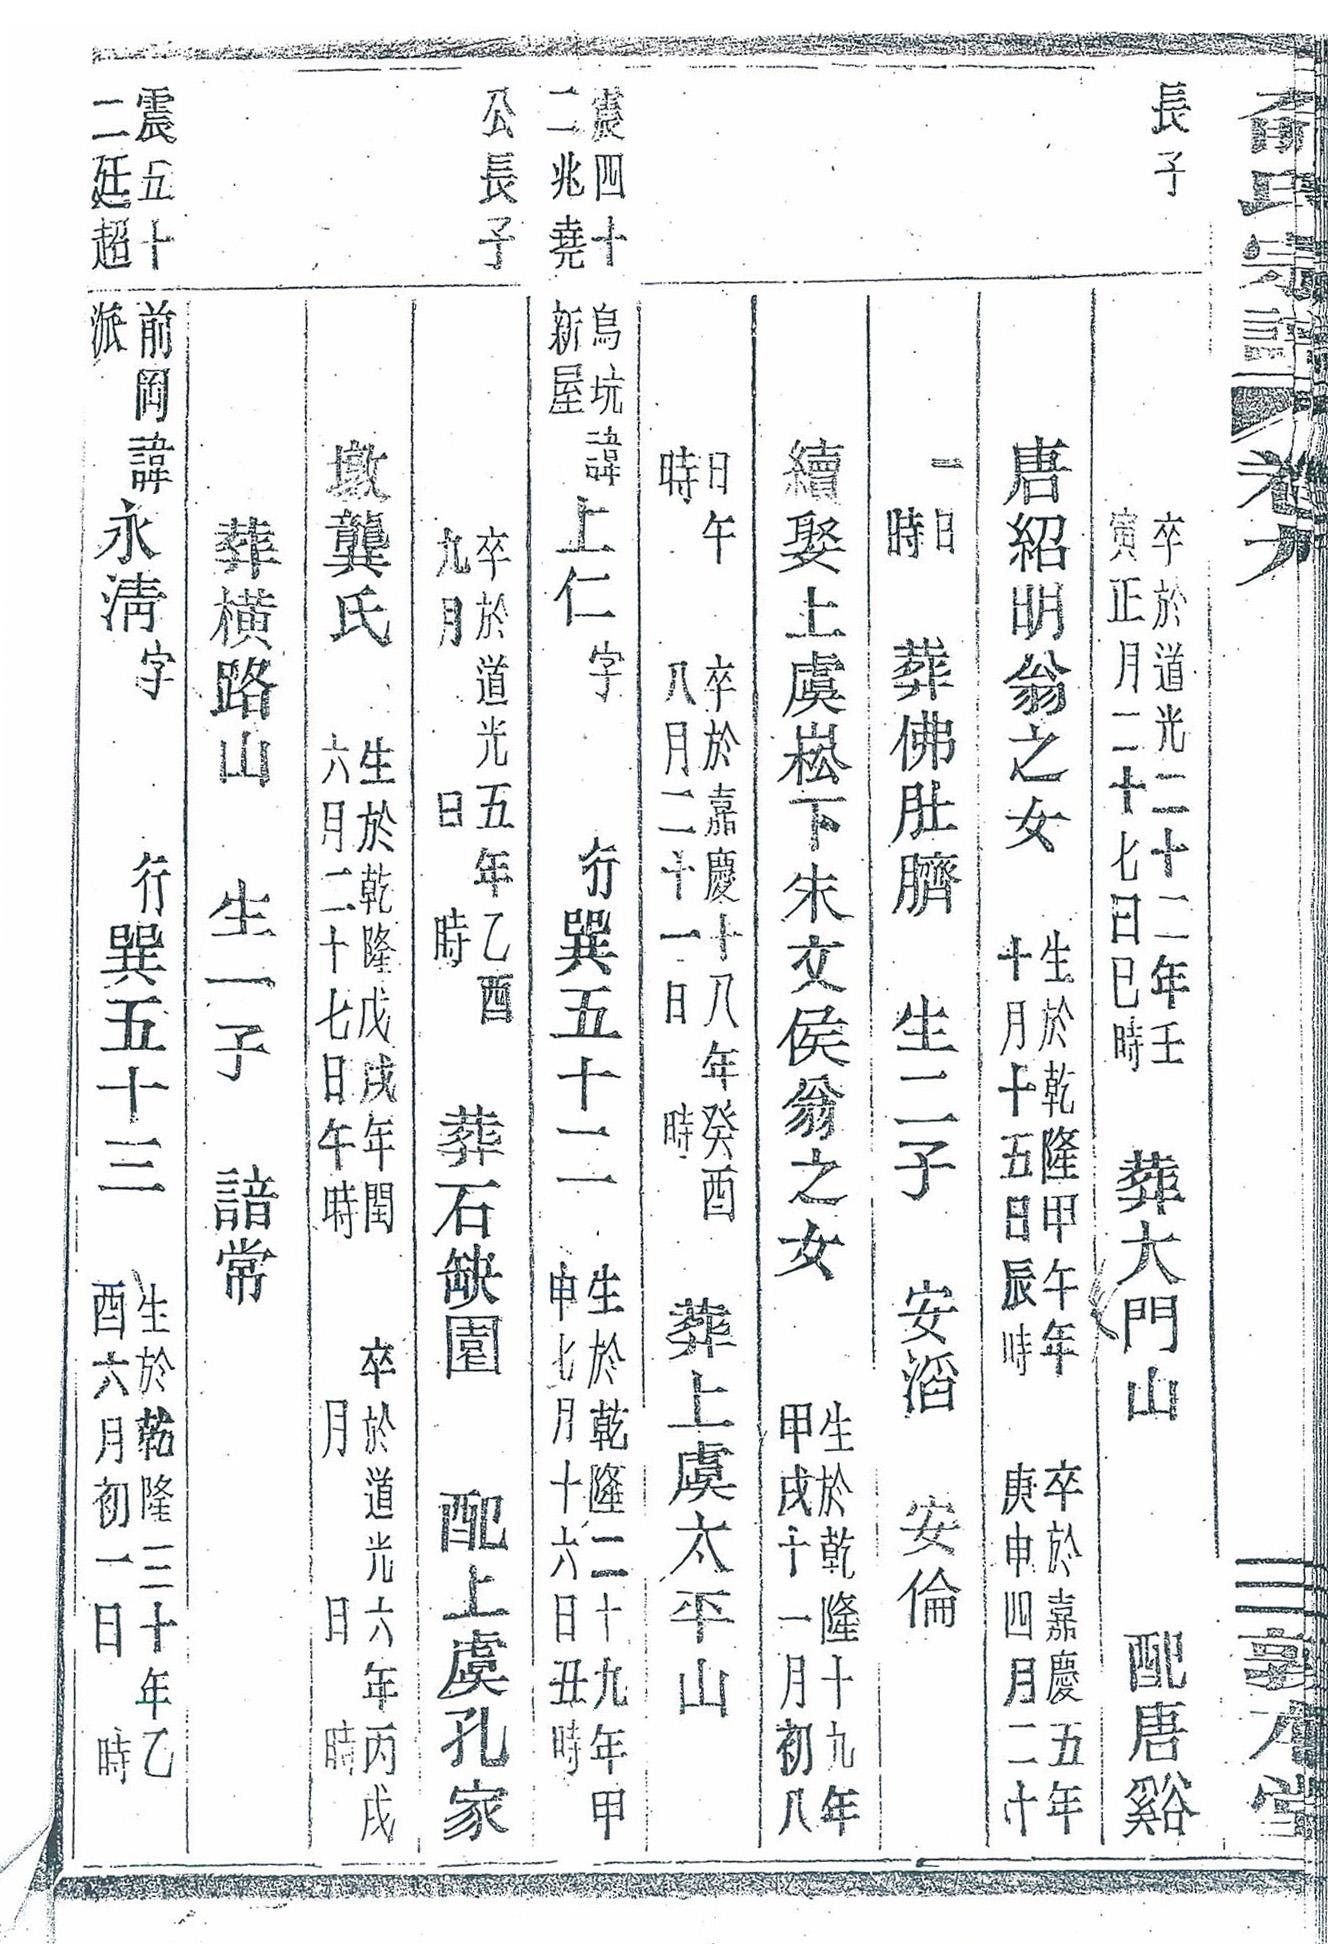 氏宗譜 卷九
長子
卒於道光二十二年壬
寅正月二十七日巳時
葬大門山 配唐谿
唐紹明翁之女
生於乾隆甲午年
十月十五日辰時
卒於嘉慶五年
庚申四月二十
一日
時
葬佛肚臍 生二子 安滔 安倫
續娶上虞崧下朱文侯翁之女
生於乾隆十九年
甲戌十一月初八
日午
時
卒於嘉慶十八年癸酉
八月二十一日 時
葬上虞太平山
震四十
二兆堯
公長子
烏坑
新屋
諱上仁字 行巽五十二
生於乾隆二十九年甲
申七月十六日丑時
卒於道光五年乙酉
九月 日 時
葬石缺園 配上虞孔家
墩龔氏
生於乾隆戊戌年閏
六月二十七日午時
卒於道光六年丙戌
月 日 時
葬橫路山 生一子 諳常
震五十
二廷超
前岡
派
諱永淸字 行巽五十三
生於乾隆三十年乙
酉六月初一日 時